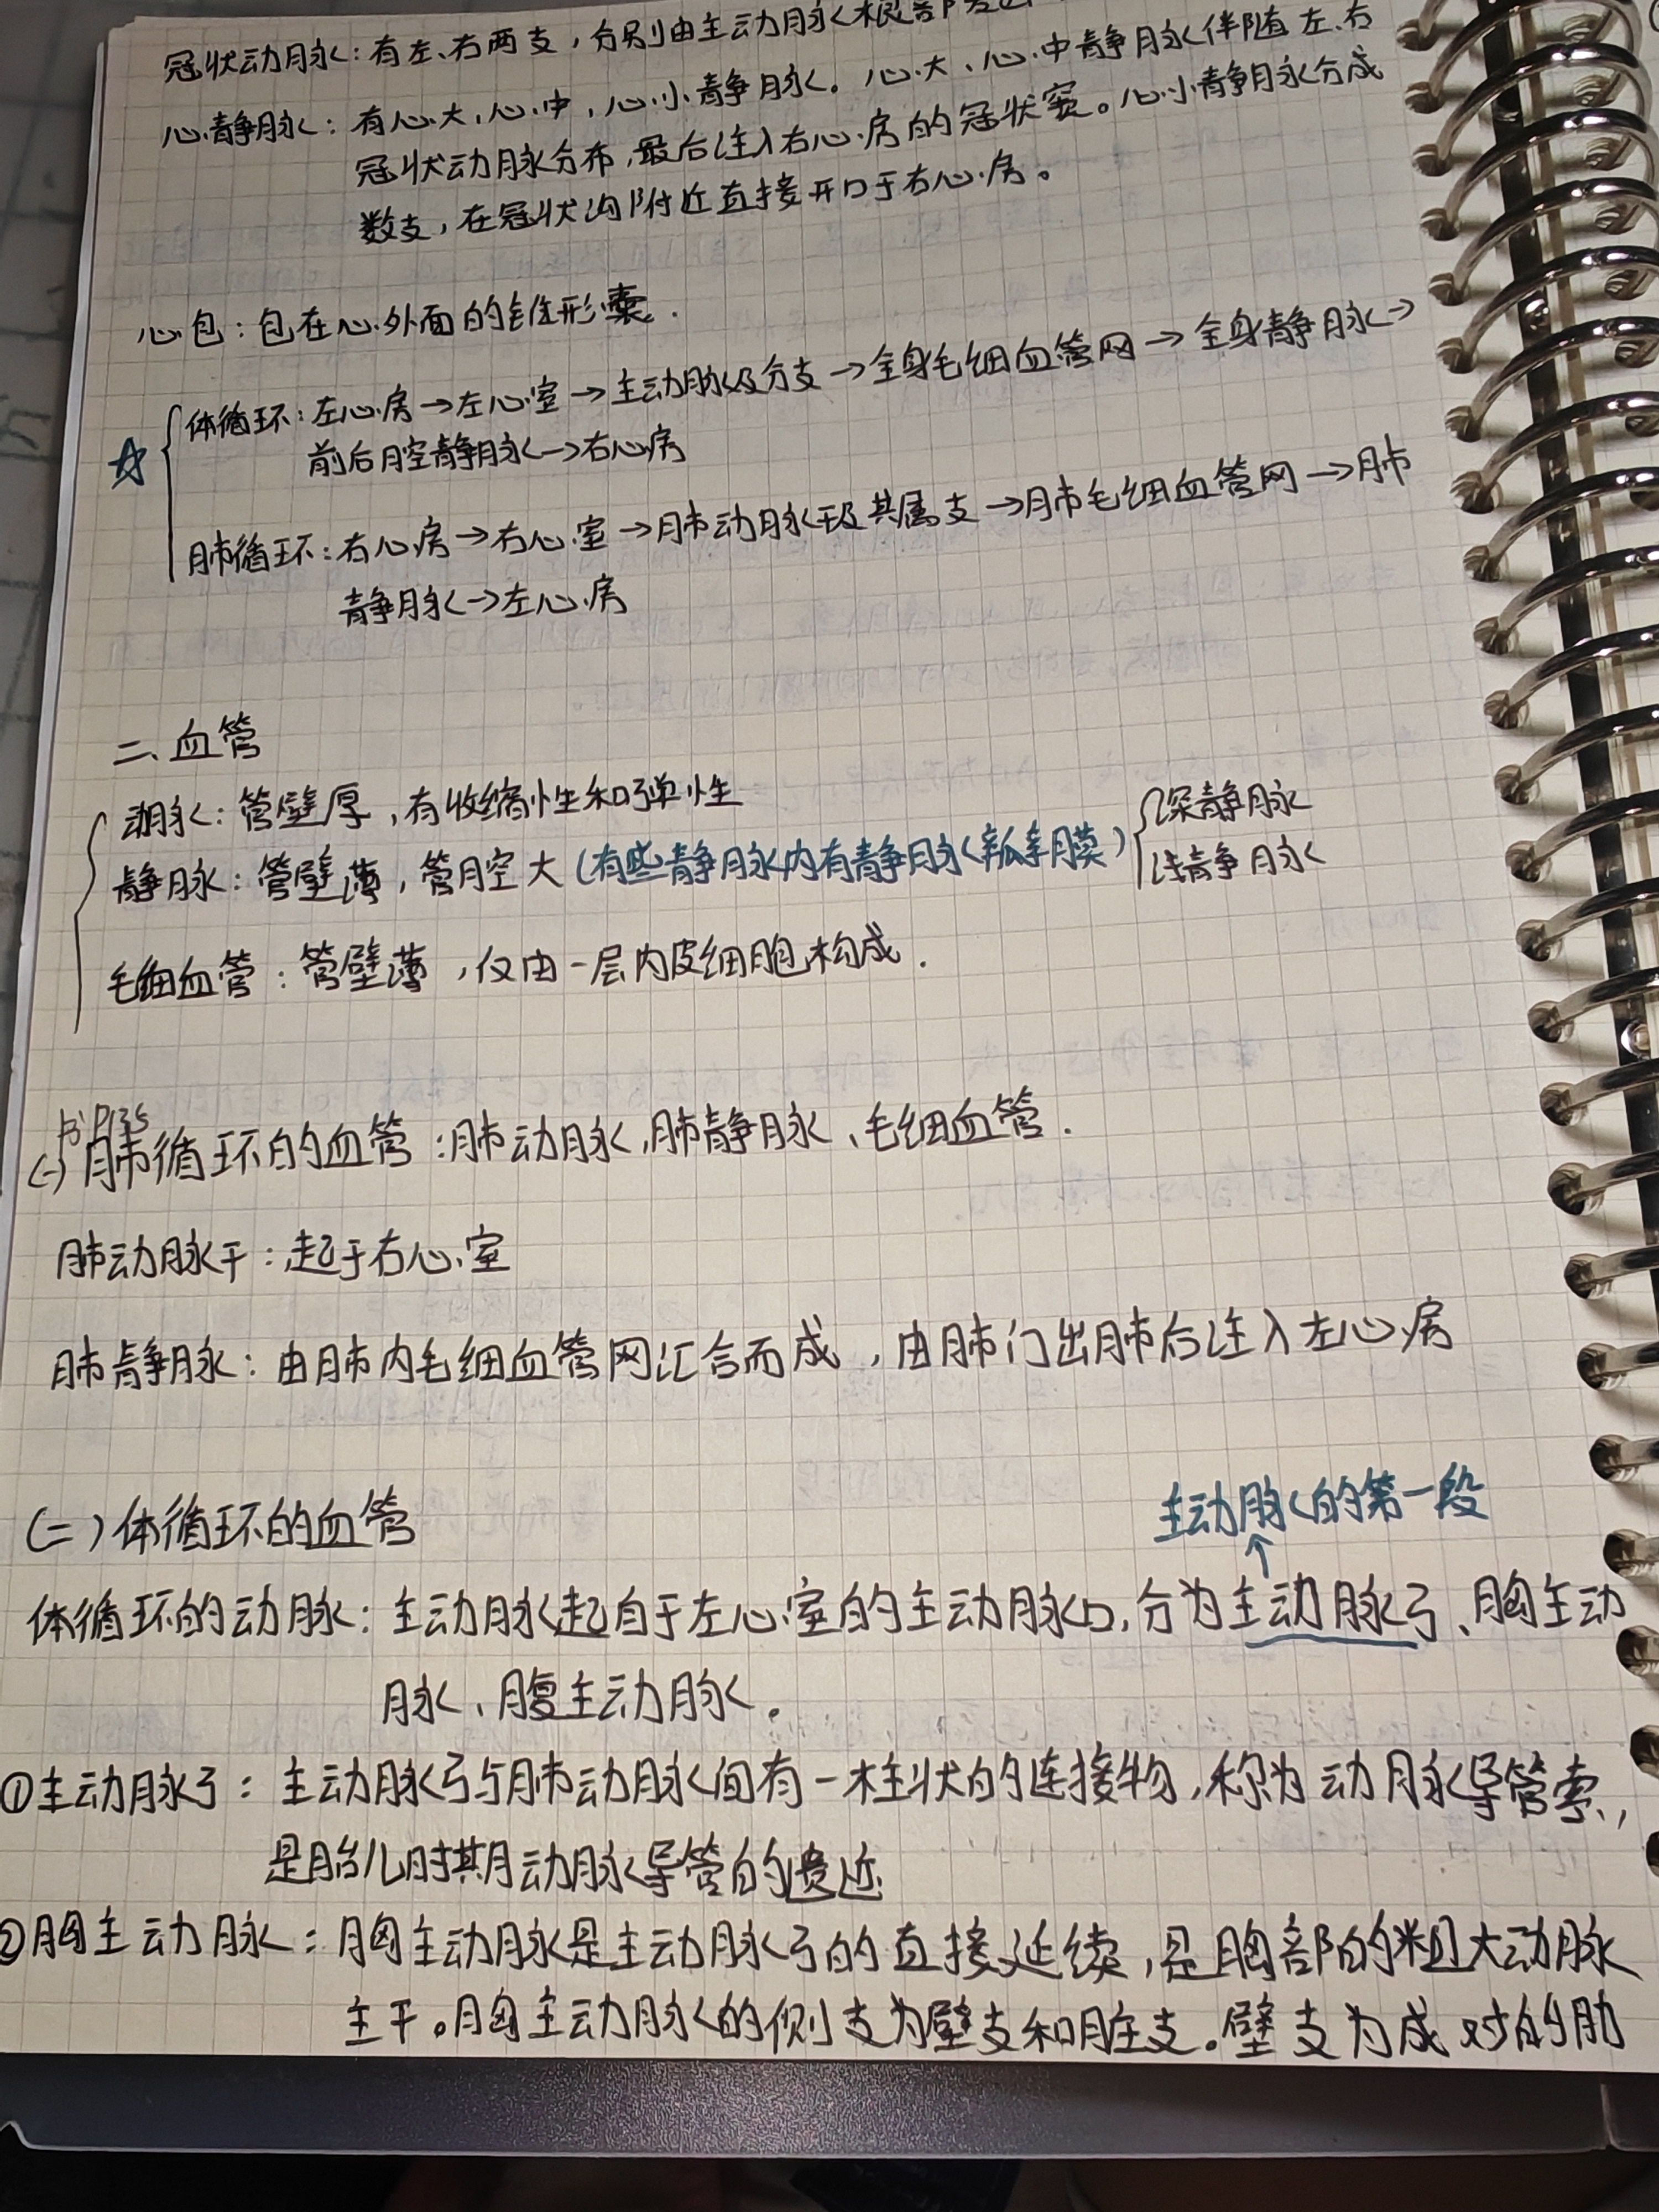 冠状动脉：有左、右两支，分别由主动脉根部
心静脉：有心大，心中，心小静脉。心大、心中静脉伴随左、右
冠状动脉分布，最后注入右心房的冠状窦。心小静脉分成
数支，在冠状沟附近直接开口于右心房。
心包：包在心外面的锥形囊．
☆ 体循环：左心房→左心室→主动脉及分支→全身毛细血管网→全身静脉→
前后腔静脉→右心房
肺循环：右心房→右心室→肺动脉及其属支→肺毛细血管网→肺
静脉→左心房
二、血管
动脉：管壁厚，有收缩性和弹性
静脉：管壁薄，管腔大（有些静脉内有静脉瓣膜） 深静脉
浅静脉
毛细血管：管壁薄，仅由一层内皮细胞构成．
书P135
(一) 肺循环的血管：肺动脉，肺静脉、毛细血管．
肺动脉干：起于右心室
肺静脉：由肺内毛细血管网汇合而成，由肺门出肺后注入左心房
(二) 体循环的血管
主动脉的第一段
↑
体循环的动脉：主动脉起自于左心室的主动脉口，分为主动脉弓、胸主动
脉、腹主动脉。
①主动脉弓：主动脉弓与肺动脉间有一柱状的连接物，称为动脉导管索，
是胎儿时期动脉导管的遗迹
②胸主动脉：胸主动脉是主动脉弓的直接延续，是胸部的粗大动脉
主干。胸主动脉的侧支为壁支和脏支。壁支为成对的肋